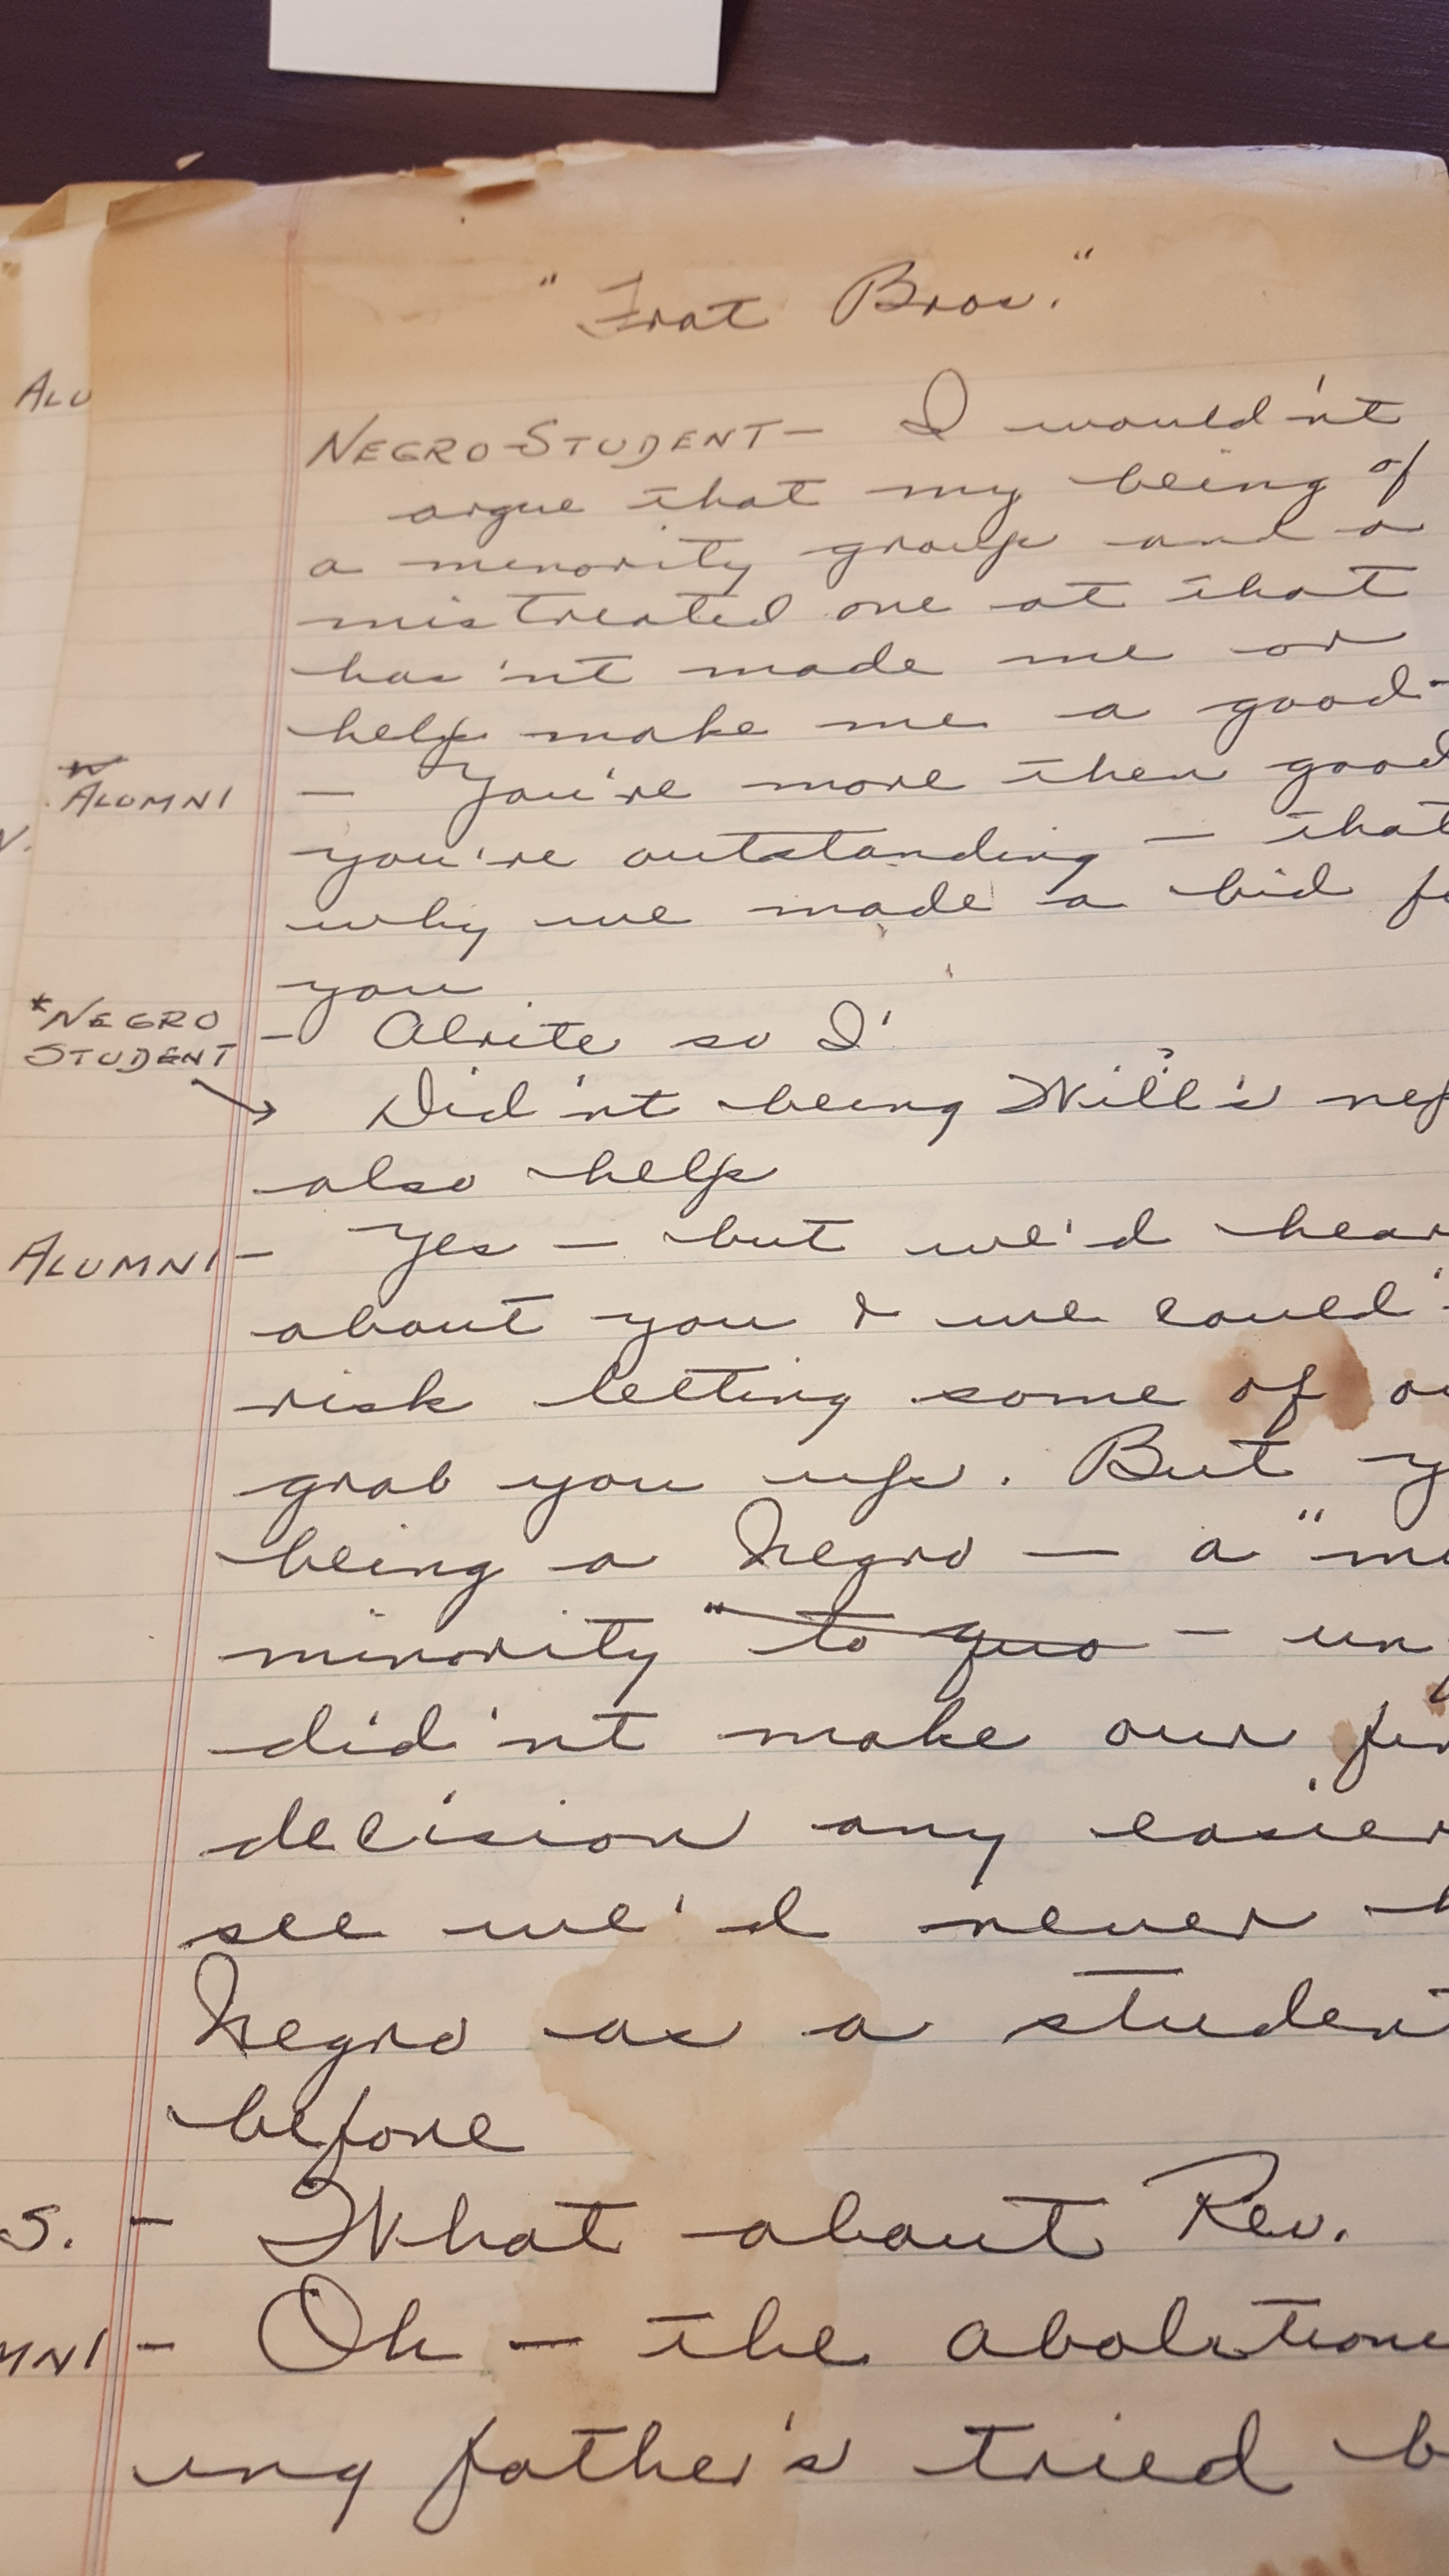 "Frat Bros."
ALU
NEGRO-STUDENT- I would'nt
argue that my being of
a minority group and a
mistreated one at that
has'nt made me or
help make me a good-
ALUMNI - You're more then good
you're outstanding - that
why we made a bid
you
*NEGRO STUDENT - Alrite so I'
Did'nt being Will's
also help
ALUMNI- Yes - but we'd hear
about you & we could'
risk letting some of
grab you up. But y
being a Negro - a "
minority" to quo - un
did'nt make our
decision any easier
see we'd never
Negro as a student
before
S. - What about Rev.
MNI- Oh - the abolitione
ing father's tried b